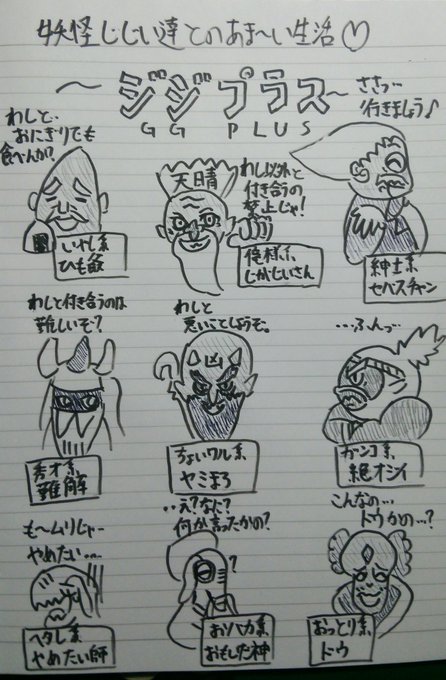 妖怪じじい達とのあま〜い生活♡
〜ジジプラス〜
GG PLUS
ささっ…
行きましょう♪
わしと…
おにぎりでも
食べんか?
いやし系
ひも爺
天晴
わし以外と
付き合うの
禁止じゃ!
俺様系
じがじいさん
紳士系
セバスチャン
わしと付き合うのは
難しいぞ?
秀才系
難解
わしと
悪いことしようぞ。
凶
ちょいワル系
ヤミまろ
…ふんっ…
ガンコ系
絶オジイ
も〜ムリじゃ〜
やめたい…
ヘタレ系
やめたい師
…え?なに?
何か言ったかの?
?
おソバカ系
おもした神
こんなの…
ドウかの…?
おっとり系
ドウ